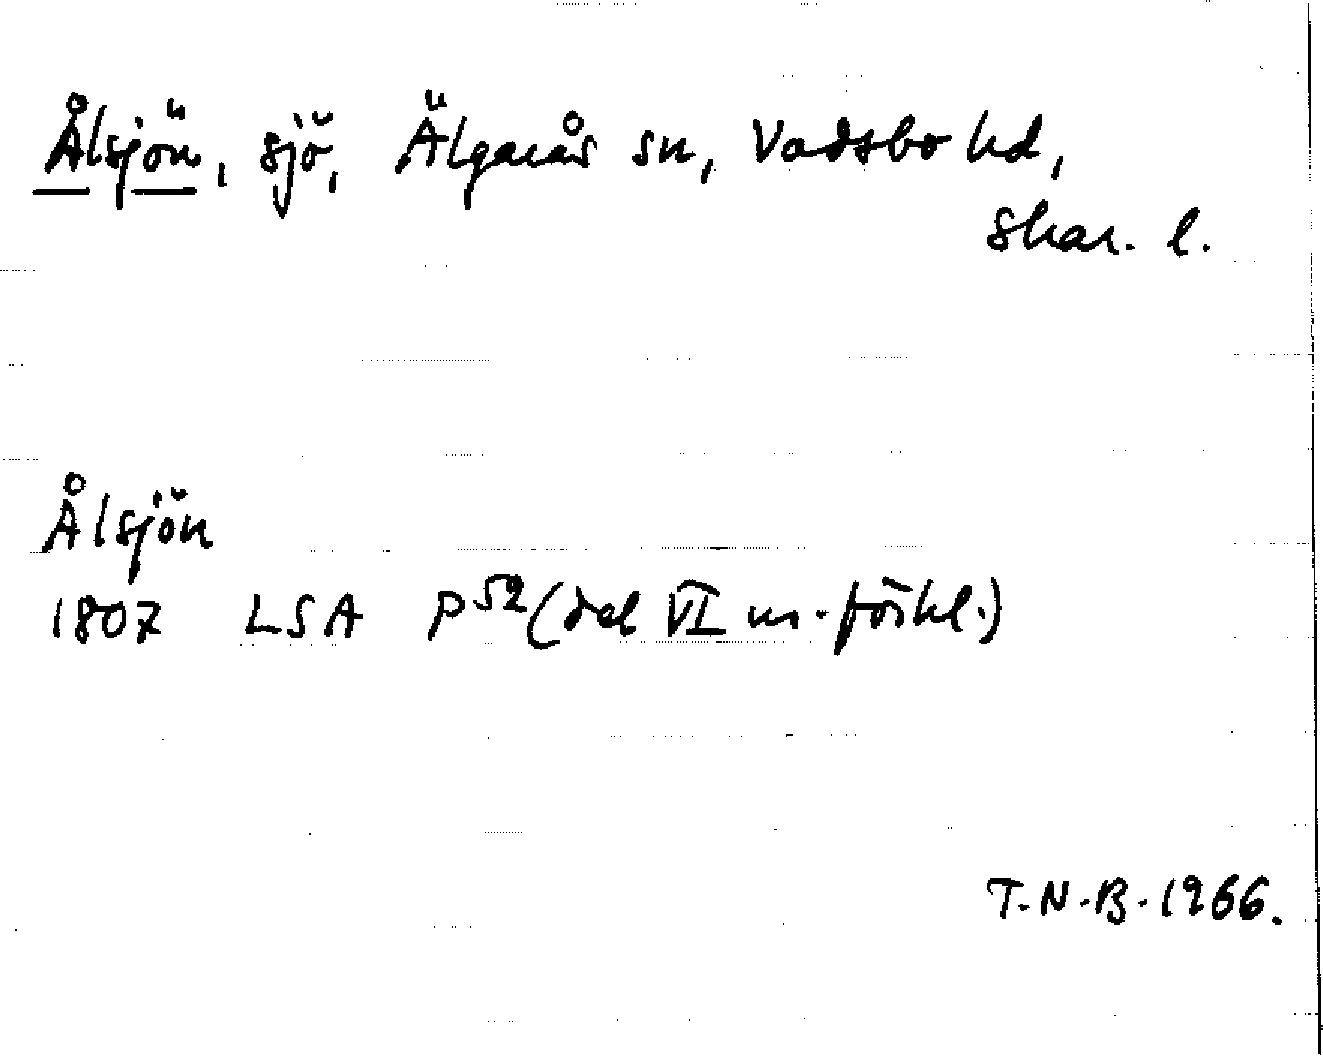 Ålsjön, sjö, Älgarås sn, Vadsbo hd,
Skar. l.
Ålsjön
1807 LSA P52 (del VI m. förkl.)
T.N.B. 1966.